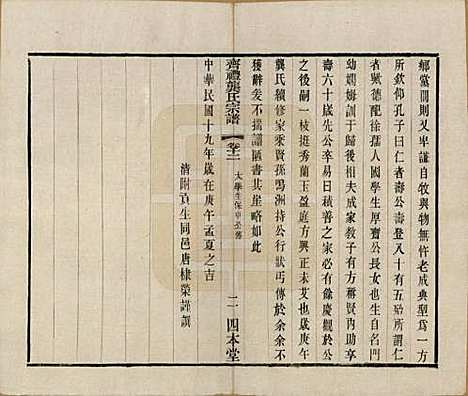 鄉黨間則又卑謙自牧與物無忤老成典型爲一方
所欽仰孔子曰仁者壽公壽登八十有五殆所謂仁
者歟德配徐孺人國學生厚齋公長女也生自名門
幼嫻姆訓于歸後相夫成家教子有方勤儉持家年
壽六十歲先公卒易曰積善之家必有餘慶觀於公
之後嗣一枝挺秀蘭玉盈庭方興正未艾也歲庚午
龔氏續修家乘賢孫鳴洲持公行狀丐傳於余余不
獲辭爰不揣譾陋書其崖略如此
中華民國十九年歲在庚午孟夏之吉
清附貢生同邑唐棣榮謹譔
齊禮龔氏宗譜
卷二
太學生
公傳
二
四本堂